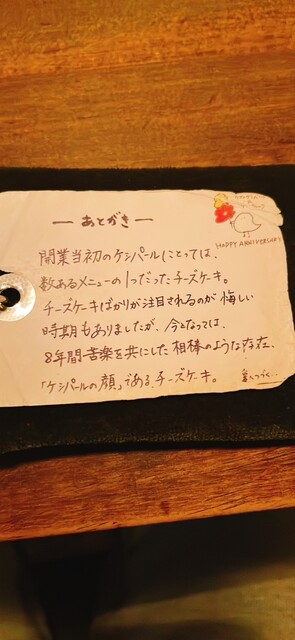 ーあとがきー
HAPPY ANNIVERSARY
開業当初のケンパールにとっては、
数あるメニューの1つだったチーズケーキ。
チーズケーキばかりが注目されるのが悔しい
時期もありましたが、今となっては、
8年間苦楽を共にした相棒のような存在。
「ケンパールの顔」である、チーズケーキ。
裏へつづく…